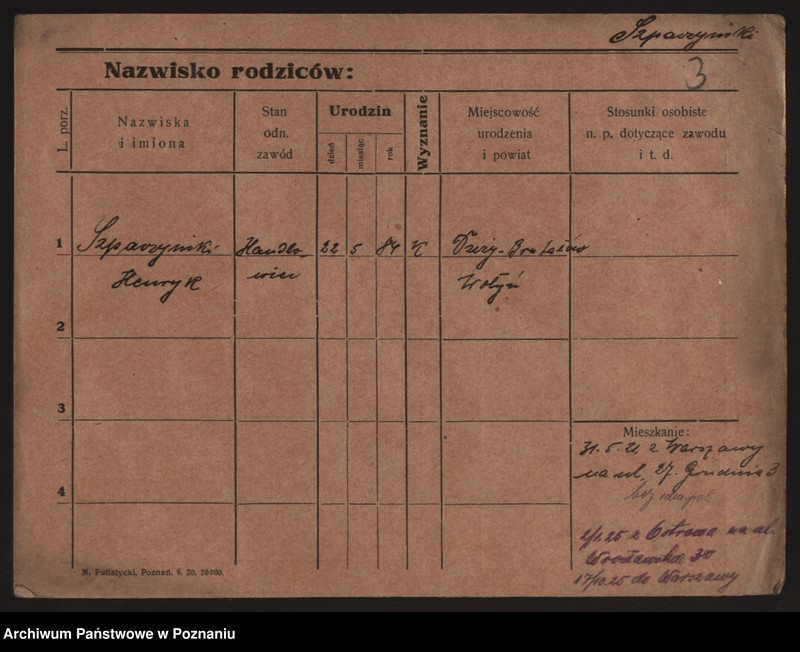 Szparzyński
3
Nazwisko rodziców:
L. porz.
Nazwiska
i imiona
Stan
odn.
zawód
Urodzin
dzień
miesiąc
rok
Wyznanie
Miejscowość
urodzenia
i powiat
Stosunki osobiste
n. p. dotyczące zawodu
i t. d.
1 Szparzyński Handlo- 22 5 84 K
Henryk wiec Wołyń
2
3
4
Mieszkanie:
31.5.21 z Warszawy
na ul. 27. Grudnia 3
2/1.25 z Ostrowa na ul.
Wrocławska 30
17/10.25 do Warszawy
M. Putiatycki, Poznań. 9. 20. 20000.
Archiwum Państwowe w Poznaniu